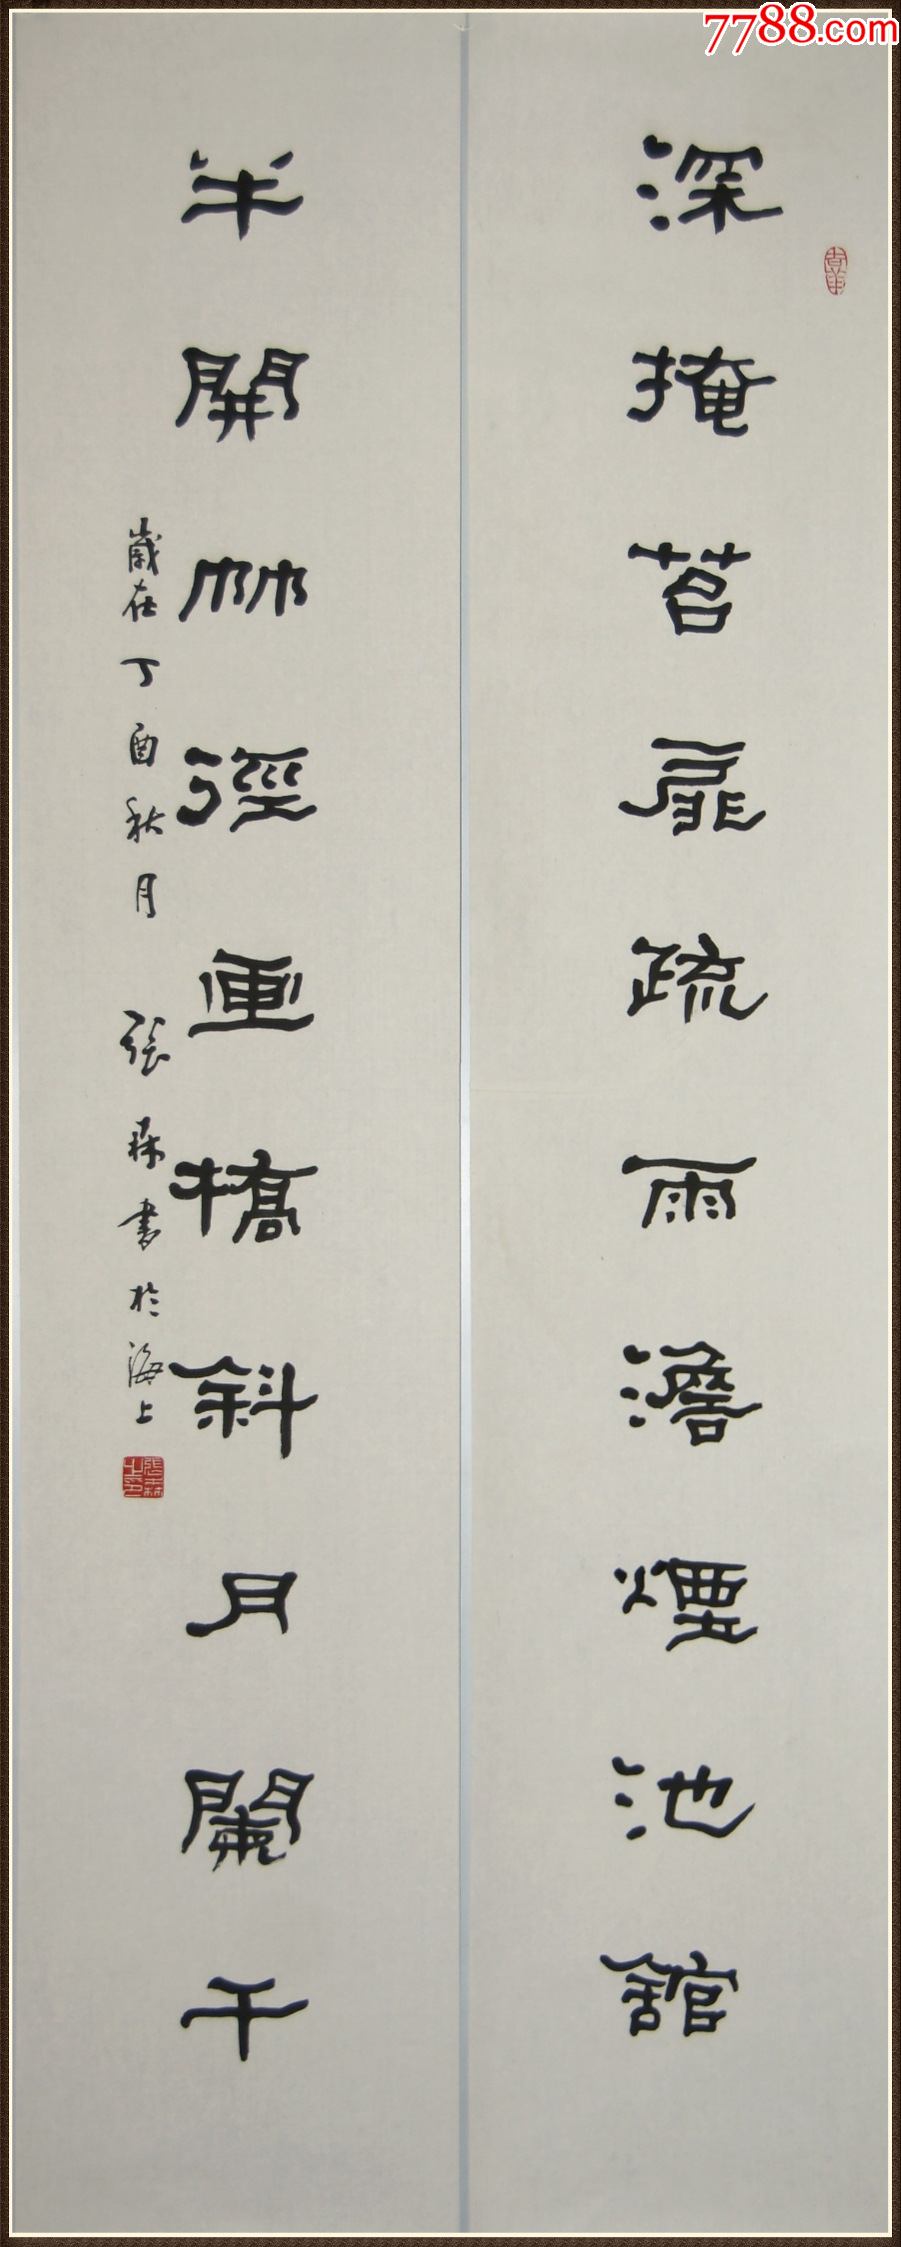 7788.com
深掩苕扉疏雨澹煙池館
半開竹徑画橋斜月闌干
歲在丁酉秋月 張森書於海上
張森之印